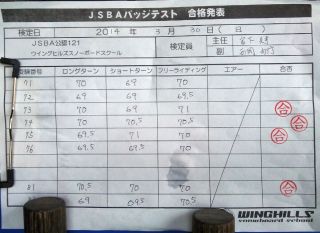 JSBAバッジテスト 合格発表
検定日 2014年 3月 30日(日)
JSBA公認121
ウイングヒルズスノーボードスクール
検定員 主任
副
受験番号 ロングターン ショートターン フリーライディング エアー 合否
71 70 69 70
72 69 69 69.5
73 70 69 71 合
74 70 70.5 70.5 合
75 69.5 71 70 合
76 69.5 69.5 70
81 70.5 70 70 合
69 69.5 70.5
WINGHILLS
snowboard school